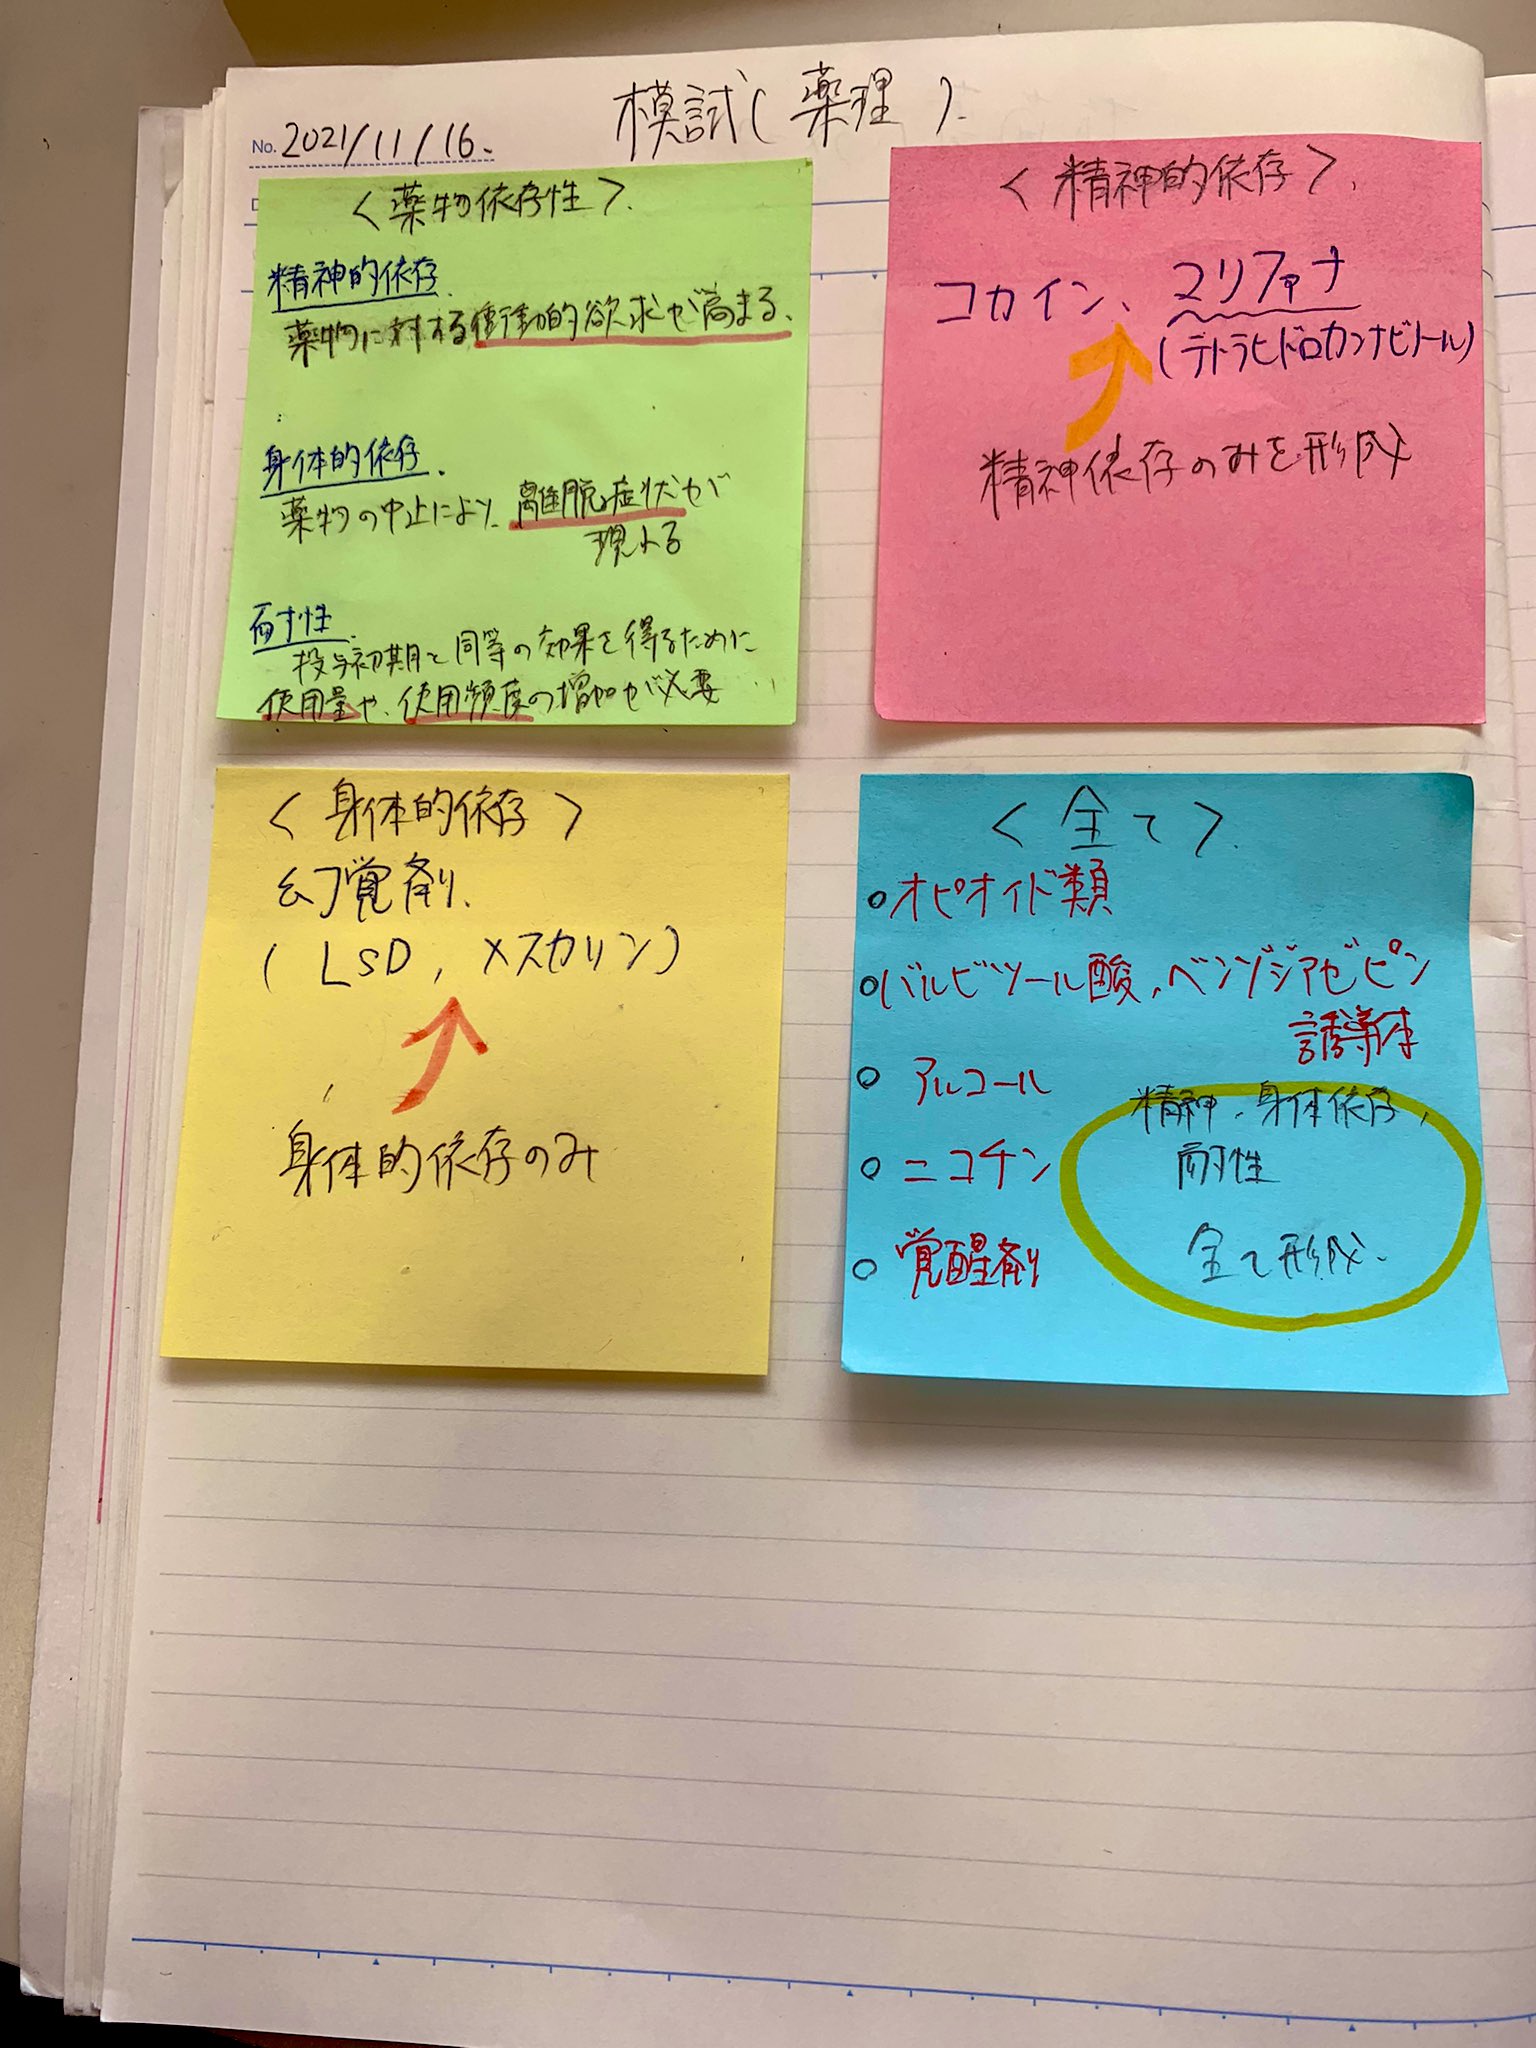 模試(薬理).
No. 2021/11/16.
<薬物依存性>.
精神的依存.
薬物に対する衝動的欲求が高まる.
身体的依存.
薬物の中止により、離脱症状が
現れる
耐性.
投与初期と同等の効果を得るために
使用量や、使用頻度の増加が必要
<精神的依存>.
コカイン、マリファナ
(テトラヒドロカンナビノール)
精神依存のみを形成
<身体的依存>
幻覚剤.
(LSD, メスカリン)
身体的依存のみ
<全て>.
○オピオイド類
○バルビツール酸, ベンゾジアゼピン
誘導体
○ アルコール
○ ニコチン
○ 覚醒剤
精神、身体依存,
耐性
全て形成.